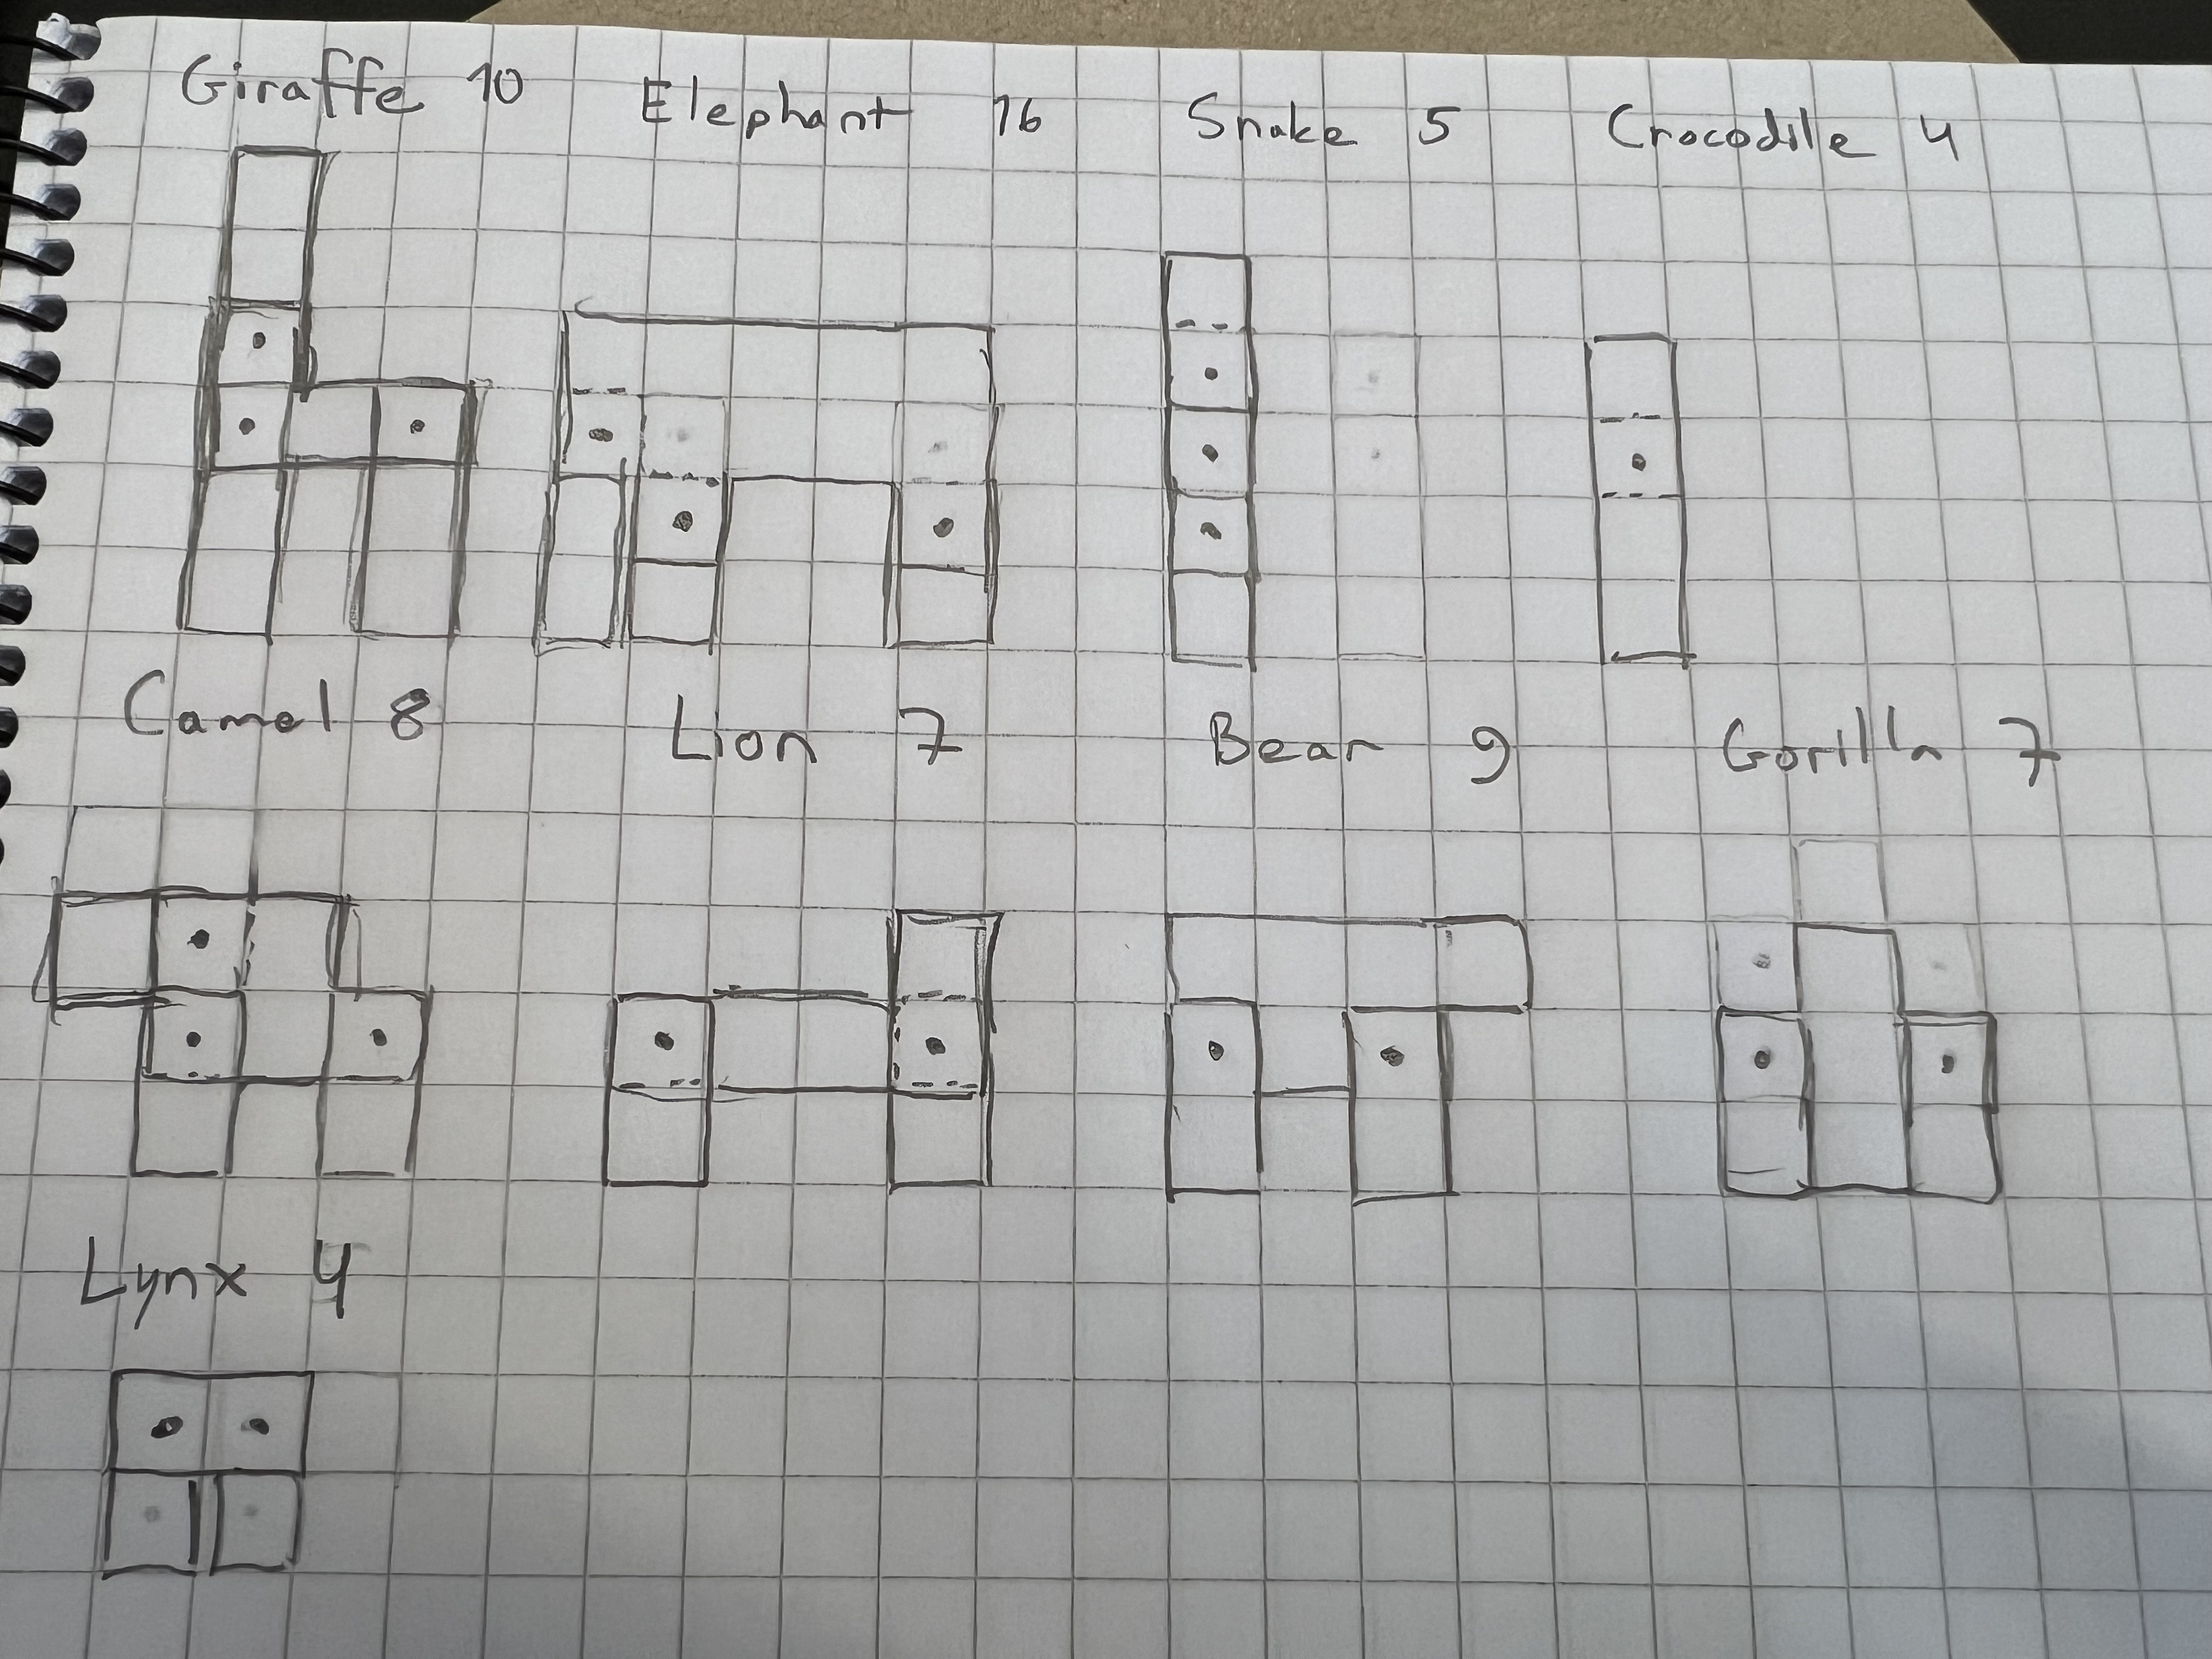 Giraffe 10 Elephant 16 Snake 5 Crocodile 4
Camel 8 Lion 7 Bear 9 Gorilla 7
Lynx 4